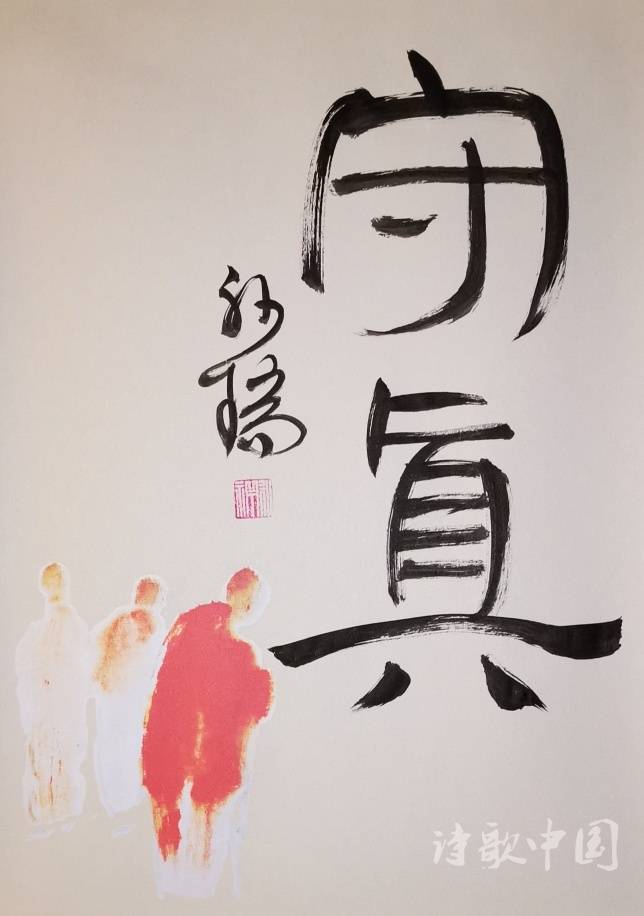 守真
瑞
诗歌中国